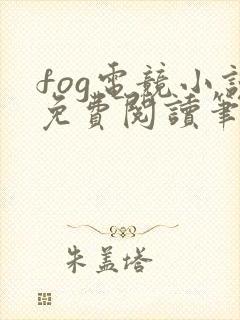 fog電競小說
免費閱讀筆
朱盖塔